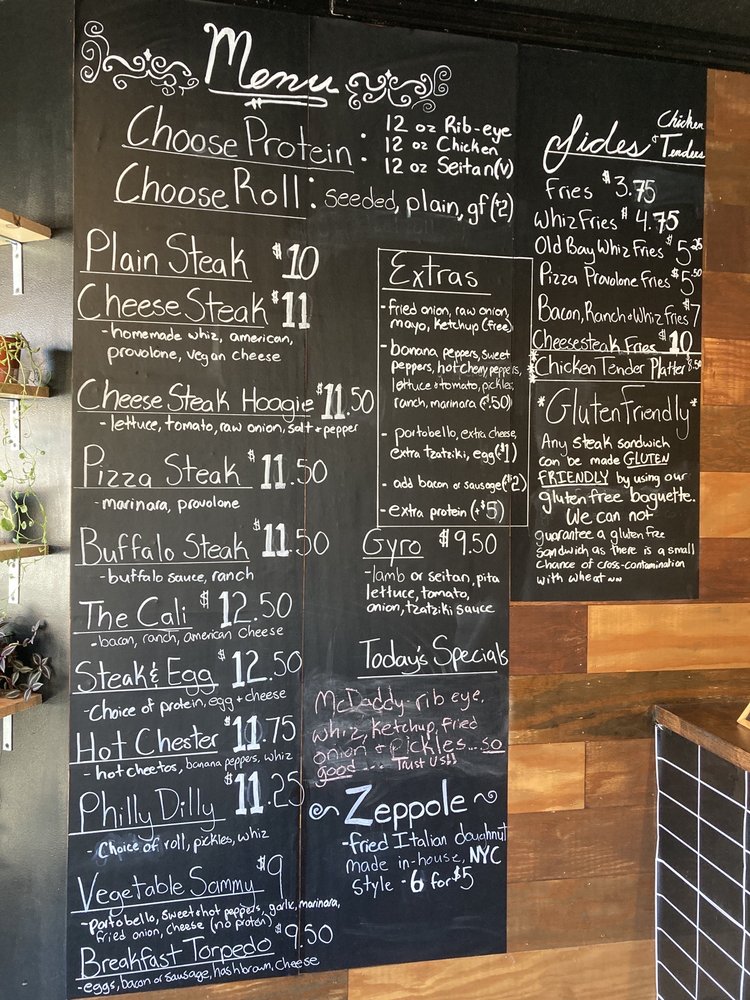 Menu
Choose Protein:
12 oz Rib-eye
12 oz Chicken
12 oz Seitan(v)
Choose Roll: seeded, plain, gf (+$2)
Plain Steak $10
Cheese Steak $11
-homemade whiz, american,
provolone, vegan cheese
Cheese Steak Hoagie $11.50
- lettuce, tomato, raw onion, salt + pepper
Pizza Steak $11.50
-marinara, provolone
Buffalo Steak $11.50
-buffalo sauce, ranch
The Cali $12.50
-bacon, ranch, american cheese
Steak & Egg $12.50
-Choice of protein, egg + cheese
Hot Chester $11.75
- hot cheetos, banana peppers, whiz
Philly Dilly $11.25
- Choice of roll, pickles, whiz
Vegetable Sammy $9
-portobello, sweet & hot peppers, garlic, marinara,
fried onion, cheese (no protein)
Breakfast Torpedo $9.50
-eggs, bacon or sausage, hashbrown, cheese
Extras
-fried onion, raw onion,
mayo, ketchup (free)
- banana peppers, sweet
peppers, hot cherry peppers,
lettuce & tomato, pickles,
ranch, marinara (+$.50)
- portobello, extra cheese,
extra tzatziki, egg (+$1)
- add bacon or sausage (+$2)
- extra protein (+$5)
Gyro $9.50
-lamb or seitan, pita
lettuce, tomato,
onion, tzatziki sauce
Today's Specials
McDaddy-rib eye,
whiz, ketchup, fried
onion + pickles...so
good... Trust us!!
Zeppole
-fried Italian doughnut
made in-house, NYC
style - 6 for $5
Sides & Chicken Tenders
Fries $3.75
Whiz Fries $4.75
Old Bay Whiz Fries $5.25
Pizza Provolone Fries $5.50
Bacon, Ranch & Whiz Fries $7
Cheesesteak Fries $10
Chicken Tender Platter $8.50
*Gluten Friendly*
Any steak sandwich
can be made GLUTEN
FRIENDLY by using our
gluten free baguette.
We can not
guarantee a gluten free
sandwich as there is a small
chance of cross-contamination
with wheat ~~